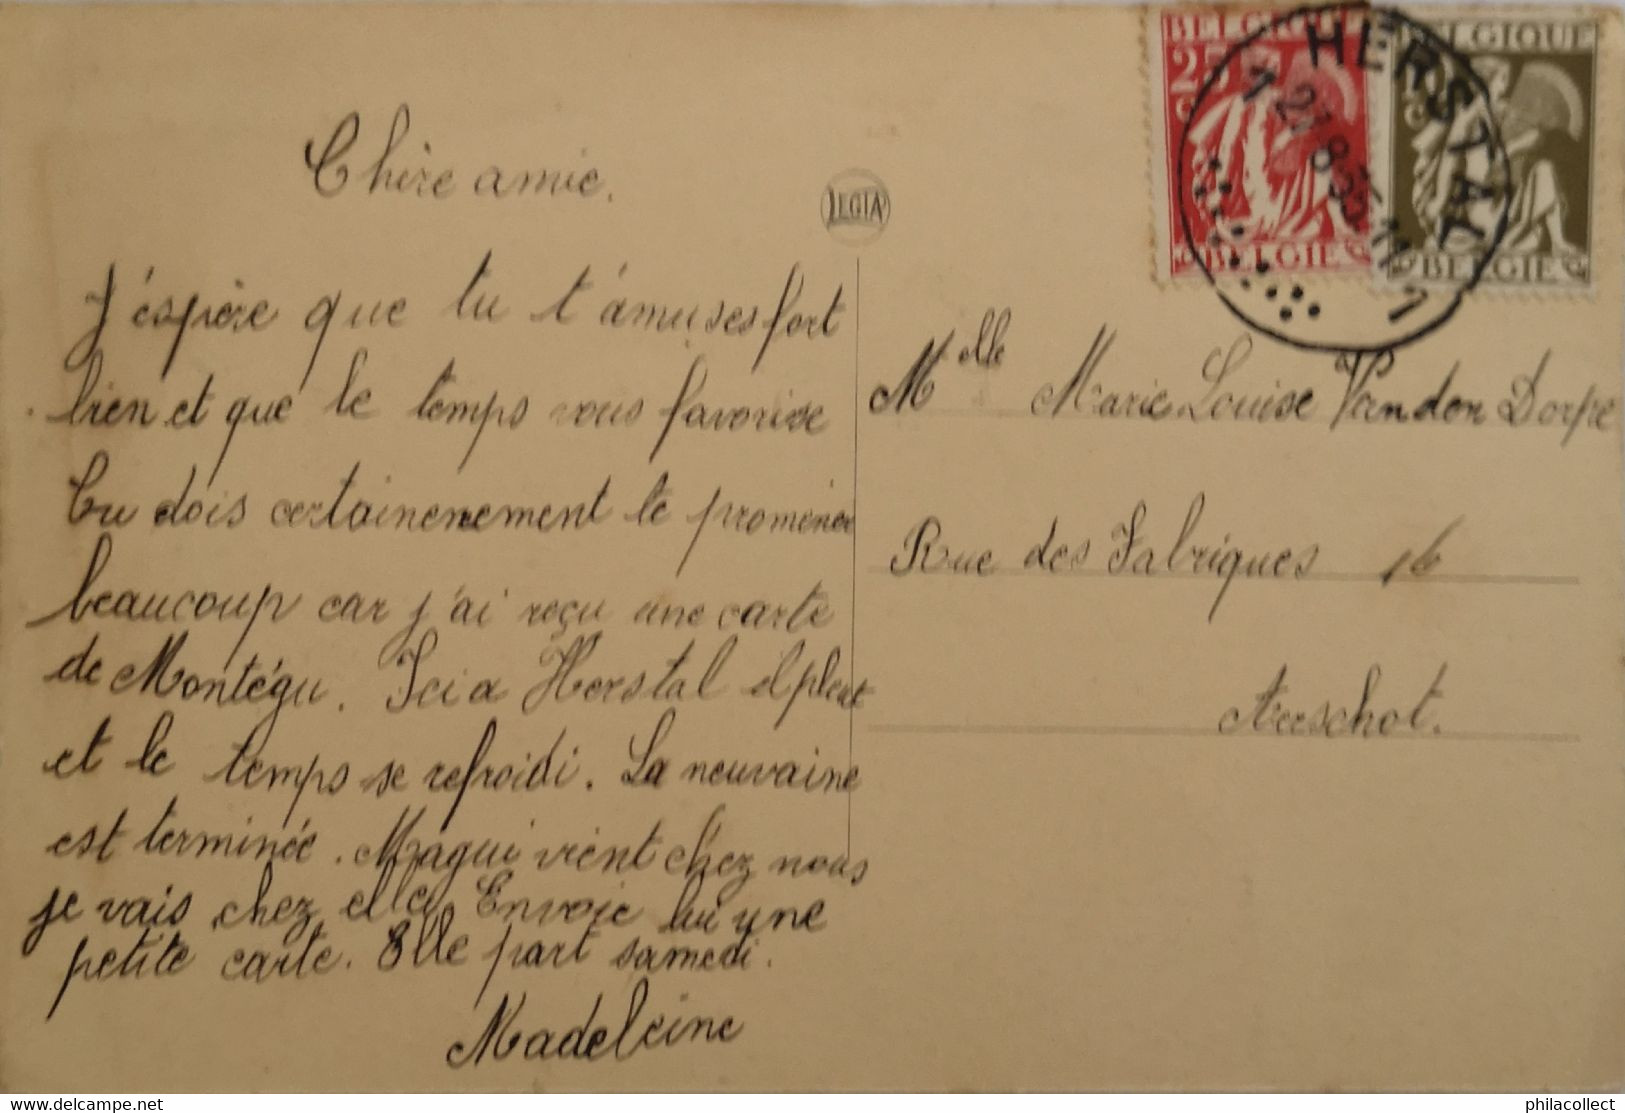 Chère amie.
J'éspère que tu t'amuses fort
bien et que le temps vous favorise
Tu dois certainenement te proméner
beaucoup car j'ai reçu une carte
de Montégu. Ici a Herstal il pleut
et le temps se refroidi. La neuvaine
est terminée. Magui vient chez nous
je vais chez elle. Envoie lui une
petite carte. Elle part samedi.
Madeleine
LEGIA
BELGIQUE
25 c
BELGIE
BELGIQUE
BELGIE
HERSTAL
Melle Marie Louise Vanden Dorpe
Rue des Fabriques 16
Aerschot.
philacollect
Website : http://www.delcampe.net